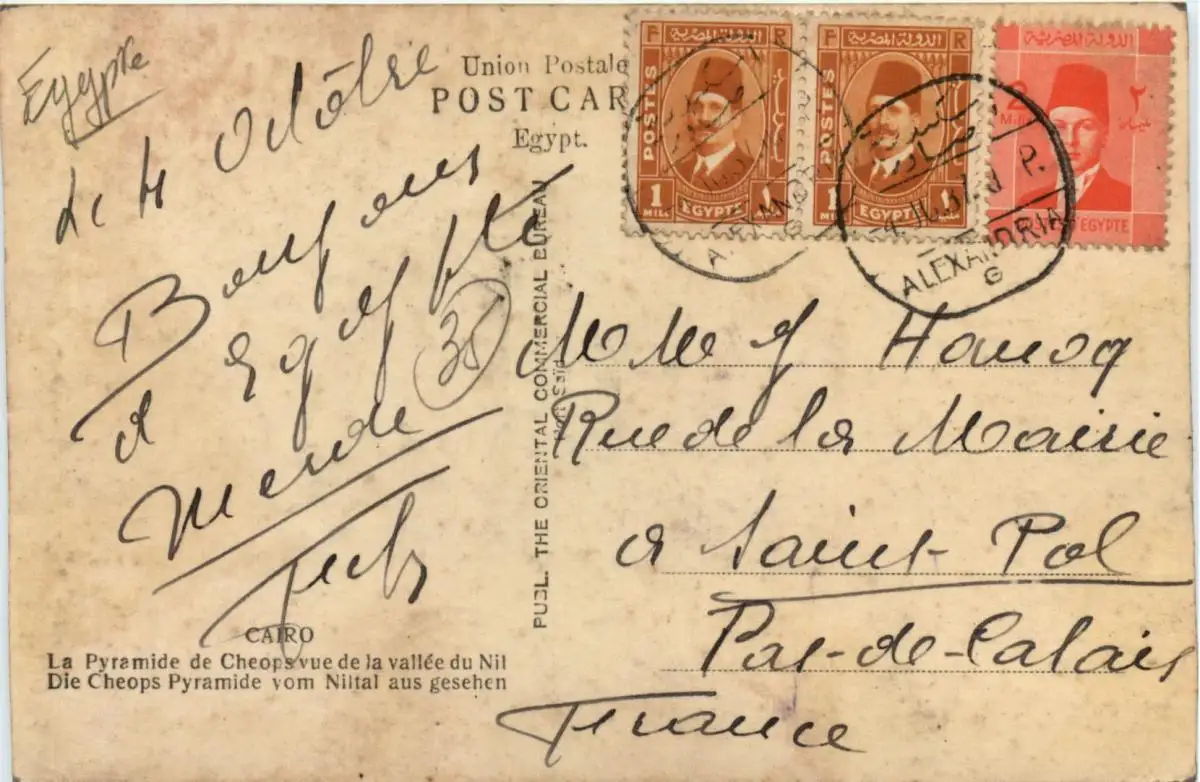 Egypte
Le 4 Octobre
Union Postale
POST CAR
Egypt.
Bonjour
d Egypte
38
PUBL. THE ORIENTAL COMMERCIAL BUREAU
Port Said
CAIRO
La Pyramide de Cheops vue de la vallée du Nil
Die Cheops Pyramide vom Niltal aus gesehen
F الدولة المصرية R
POSTES
1 MILL
EGYPTE
F الدولة المصرية R
POSTES
1
EGYPTE
الدولة المصرية
2 ٢
MILLS
EGYPTE
ALEXANDRIA
G
ALEXANDRIA
G
Hanoq
Rue de la Mairie
a Saint-Pol
Pas-de-Calais
France